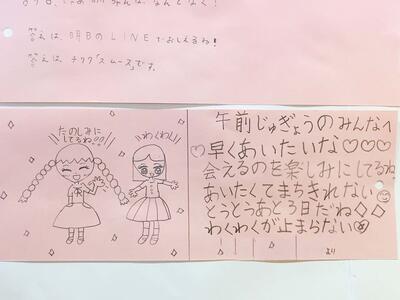 答えは明日のLINEでおしえるね!
答えは、ナツク「スムース」です。
たのしみに
してるね!!
わくわく!!
午前じゅぎょうのみんなへ
♡早くあいたいな♡♡♡
会えるのを楽しみにしてるね
あいたくてまちきれない
とうとうあと3日だね◇◇
わくわくが止まらない
より